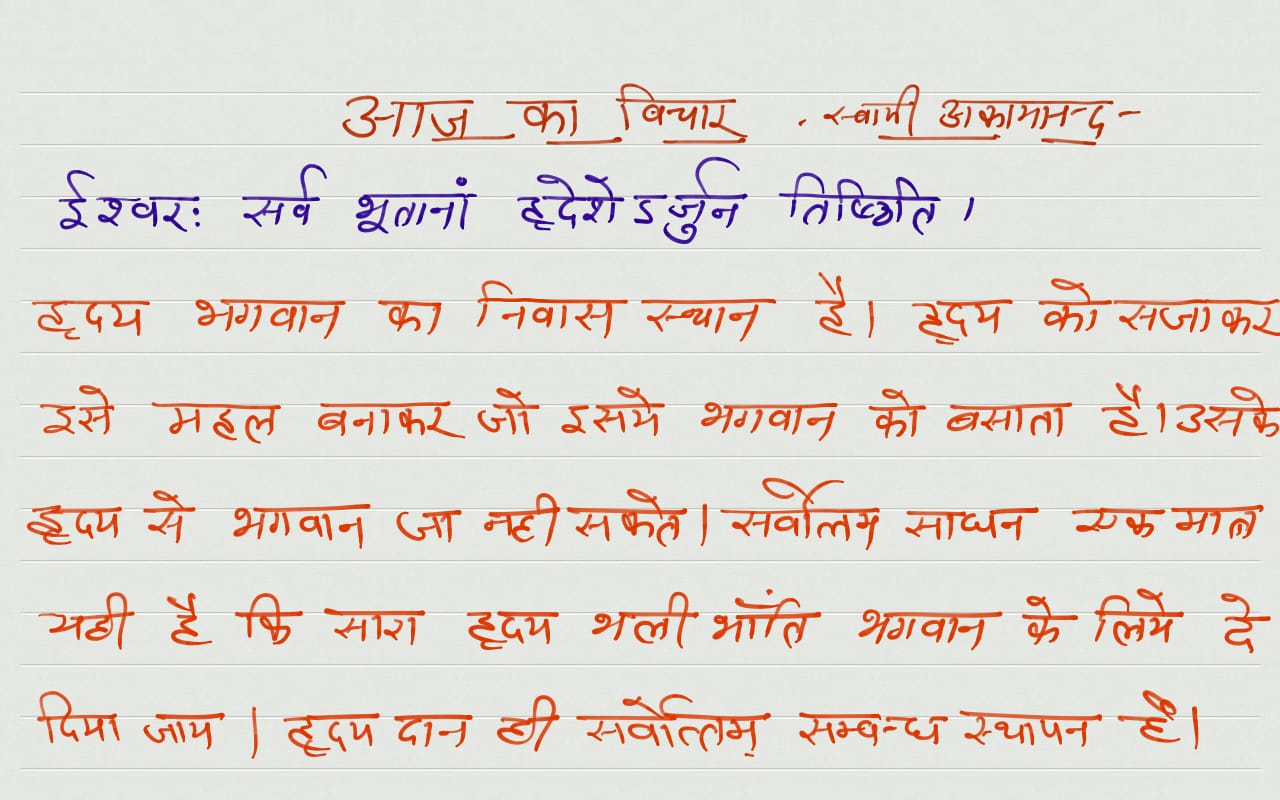 आज का विचार . स्वामी
ईश्वरः सर्व भूतानां हृदेशेऽर्जुन तिष्ठति ।
हृदय भगवान का निवास स्थान है। हृदय को सजाकर
इसे महल बनाकर जो इसमे भगवान को बसाता है। उसके
हृदय से भगवान जा नही सकते। सर्वोत्तम साधन एक मात्र
यही है कि सारा हृदय भली भाँति भगवान के लिये दे
दिया जाय । हृदय दान ही सर्वोत्तम् सम्बन्ध स्थापन है।